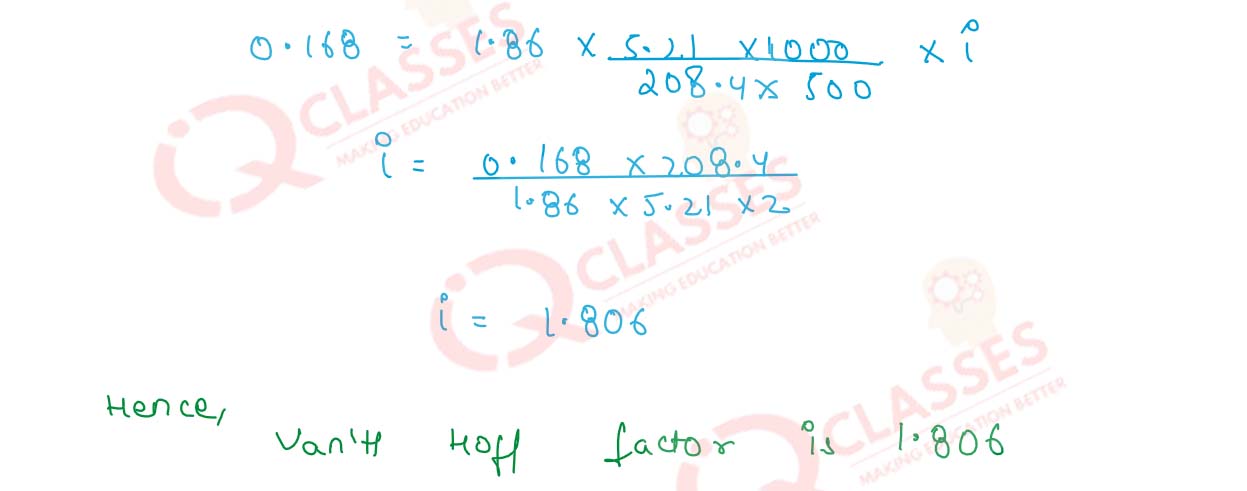 0.168 = 1.86 × 5.21 ×1000 / 208.4× 500 × i
i = 0.168 ×208.4 / 1.86 ×5.21 ×2
i = 1.806
Hence,
Van'H Hoff factor is 1.806
CLASSES
MAKING EDUCATION BETTER
CLASSES
MAKING EDUCATION BETTER
CLASSES
MAKING EDUCATION BETTER